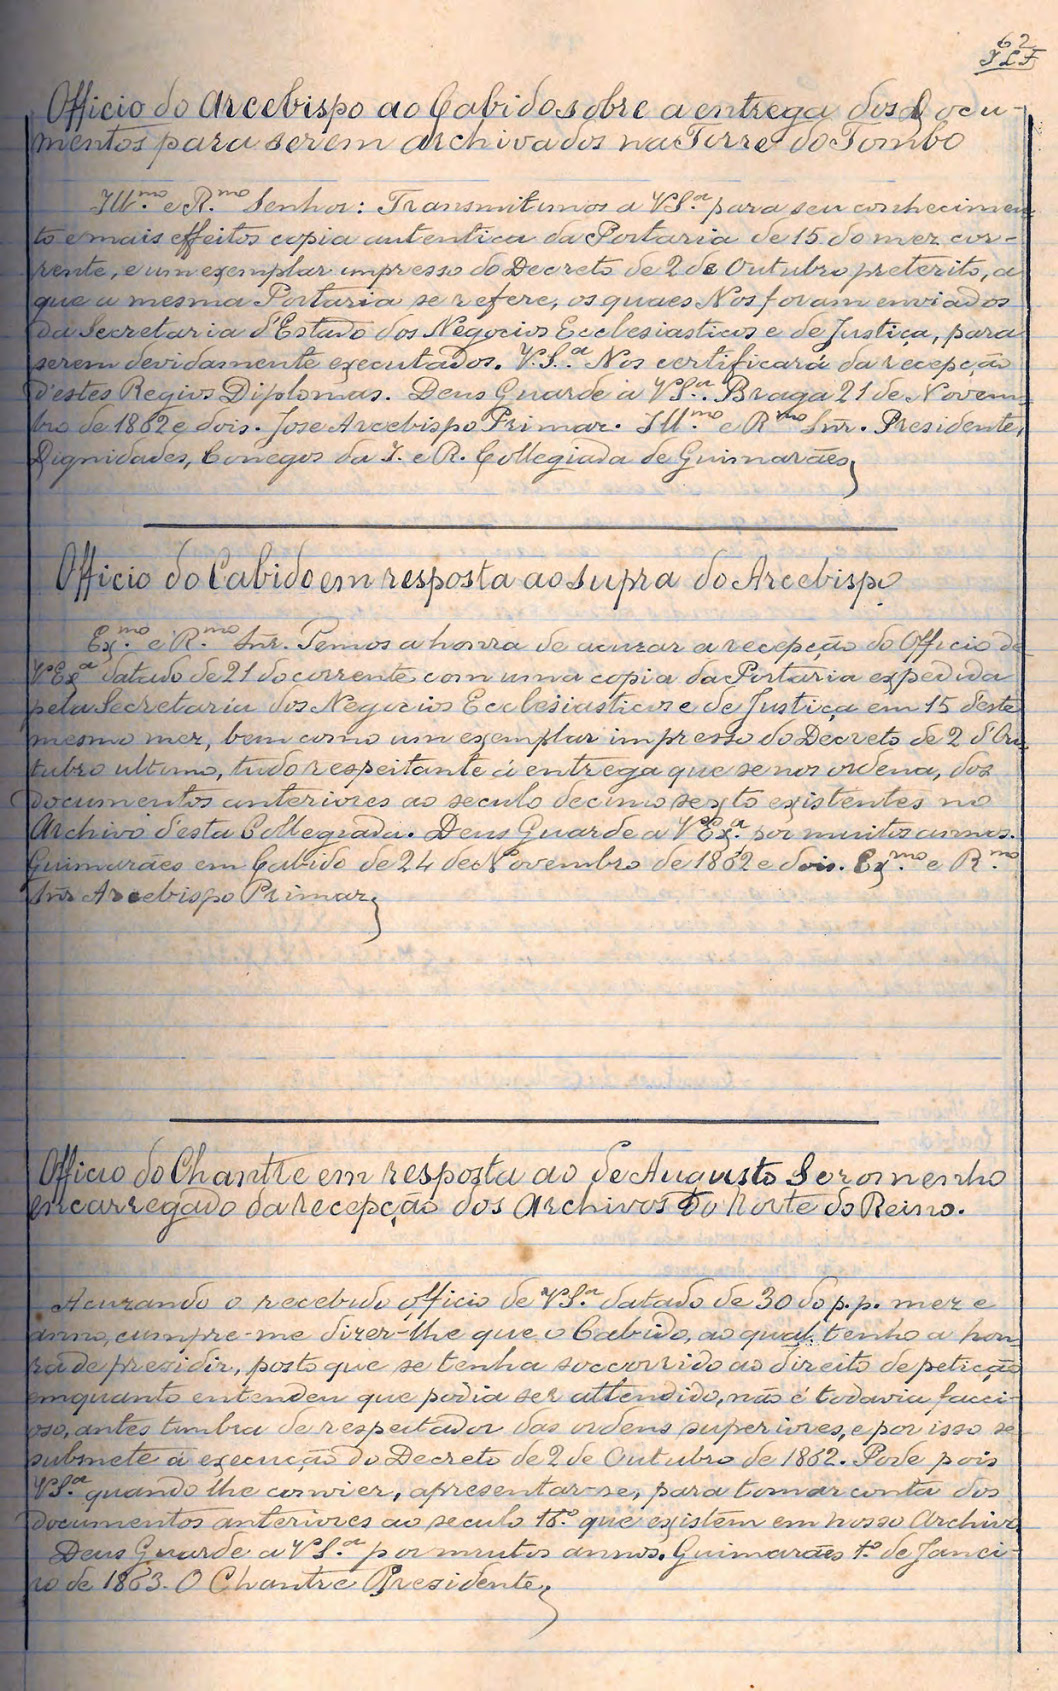 62
JLF
Officio do Arcebispo ao Cabido sobre a entrega dos docu-
mentos para serem archivados na Torre do Tombo
Ill.mo e R.mo Senhor: Transmitimos a VS.a para seu conhecimen-
to e mais effeitos copia autentica da Portaria de 15 do mez cor-
rente, e um exemplar impresso do Decreto de 2 de Outubro preterito, a
que a mesma Portaria se refere, os quaes Nos foram enviados
da Secretaria d'Estado dos Negocios Ecclesiasticos e de Justiça, para
serem devidamente executados. V.S.a Nos certificará da recepção
d'estes Regios Diplomas. Deus Guarde a VS.a. Braga 21 de Novem-
bro de 1862 e dois. Jose Arcebispo Primaz. Ill.mo e R.mo Snr. Presidente,
Dignidades, Conegos da I. e R. Collegiada de Guimarães,
Officio do Cabido em resposta ao supra do Arcebispo
Ex.mo e R.mo Snr. Temos a honra de acuzar a recepção do Officio de
VEx.a datado de 21 do corrente com uma copia da Portaria expedida
pela Secretaria dos Negocios Ecclesiasticos e de Justiça em 15 d'este
mesmo mez, bem como um exemplar impresso do Decreto de 2 d'Ou-
tubro ultimo, tudo respeitante á entrega que se nos ordena, dos
documentos anteriores ao seculo decimo sexto existentes no
Archivo d'esta Collegiada. Deus Guarde a VEx.a por muitos annos.
Guimarães em Cabido de 24 de Novembro de 1862 e dois. Ex.mo e R.mo
Snr Arcebispo Primaz,
Officio do Chantre em resposta ao de Augusto Soromenho
encarregado da recepção dos Archivos do Norte do Reino.
Acuzando o recebido officio de VS.a datado de 30 do p.p. mez e
anno, cumpre-me dizer-lhe que o Cabido, ao qual tenho a hon-
ra de presidir, posto que se tenha soccorrido ao direito de petição
emquanto entendeu que podia ser attendido, não é todavia facci-
oso, antes timbra de respeitador das ordens superiores, e por isso se
submete á execução do Decreto de 2 de Outubro de 1862. Pode pois
VS.a quando lhe convier, apresentar-se, para tomar conta dos
documentos anteriores ao seculo 16.º que existem em nosso Archivo
Deus Guarde a VS.a por muitos annos. Guimarães 1.º de Janei-
ro de 1863. O Chantre Presidente,